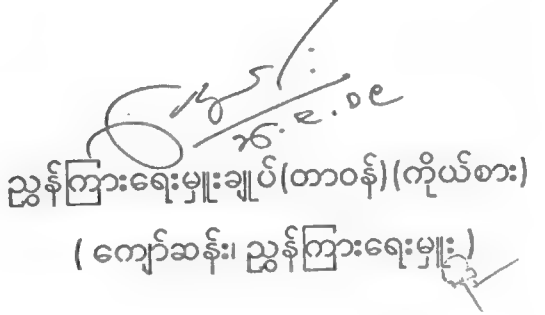 ညွှန်ကြားရေးမှူးချုပ်(တာဝန်)(ကိုယ်စား)
( ကျော်ဆန်း၊ ညွှန်ကြားရေးမှူး )